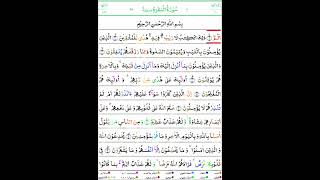 سُوْرَةُ الْبَقَرَةِ مَدَنِيَّةٌ
بِسْمِ اللهِ الرَّحْمٰنِ الرَّحِيْمِ
الٓمّٓ ذٰلِكَ الْكِتٰبُ لَا رَيْبَ فِيْهِ هُدًى لِّلْمُتَّقِيْنَ الَّذِيْنَ
يُؤْمِنُوْنَ بِالْغَيْبِ وَيُقِيْمُوْنَ الصَّلٰوةَ وَمِمَّا رَزَقْنٰهُمْ يُنْفِقُوْنَ وَالَّذِيْنَ
يُؤْمِنُوْنَ بِمَآ اُنْزِلَ اِلَيْكَ وَمَآ اُنْزِلَ مِنْ قَبْلِكَ وَبِالْاٰخِرَةِ
هُمْ يُوْقِنُوْنَ اُولٰٓئِكَ عَلٰى هُدًى مِّنْ رَّبِّهِمْ وَاُولٰٓئِكَ هُمُ
الْمُفْلِحُوْنَ اِنَّ الَّذِيْنَ كَفَرُوْا سَوَآءٌ عَلَيْهِمْ ءَاَنْذَرْتَهُمْ اَمْ لَمْ
تُنْذِرْهُمْ لَا يُؤْمِنُوْنَ خَتَمَ اللهُ عَلٰى قُلُوْبِهِمْ وَعَلٰى سَمْعِهِمْ وَعَلٰٓى
اَبْصَارِهِمْ غِشَاوَةٌ وَّلَهُمْ عَذَابٌ عَظِيْمٌ وَمِنَ النَّاسِ مَنْ يَّقُوْلُ
اٰمَنَّا بِاللهِ وَبِالْيَوْمِ الْاٰخِرِ وَمَا هُمْ بِمُؤْمِنِيْنَ يُخٰدِعُوْنَ اللهَ
وَالَّذِيْنَ اٰمَنُوْا وَمَا يَخْدَعُوْنَ اِلَّآ اَنْفُسَهُمْ وَمَا يَشْعُرُوْنَ
فِيْ قُلُوْبِهِمْ مَّرَضٌ فَزَادَهُمُ اللهُ مَرَضًا وَلَهُمْ عَذَابٌ اَلِيْمٌ بِمَا كَانُوْا